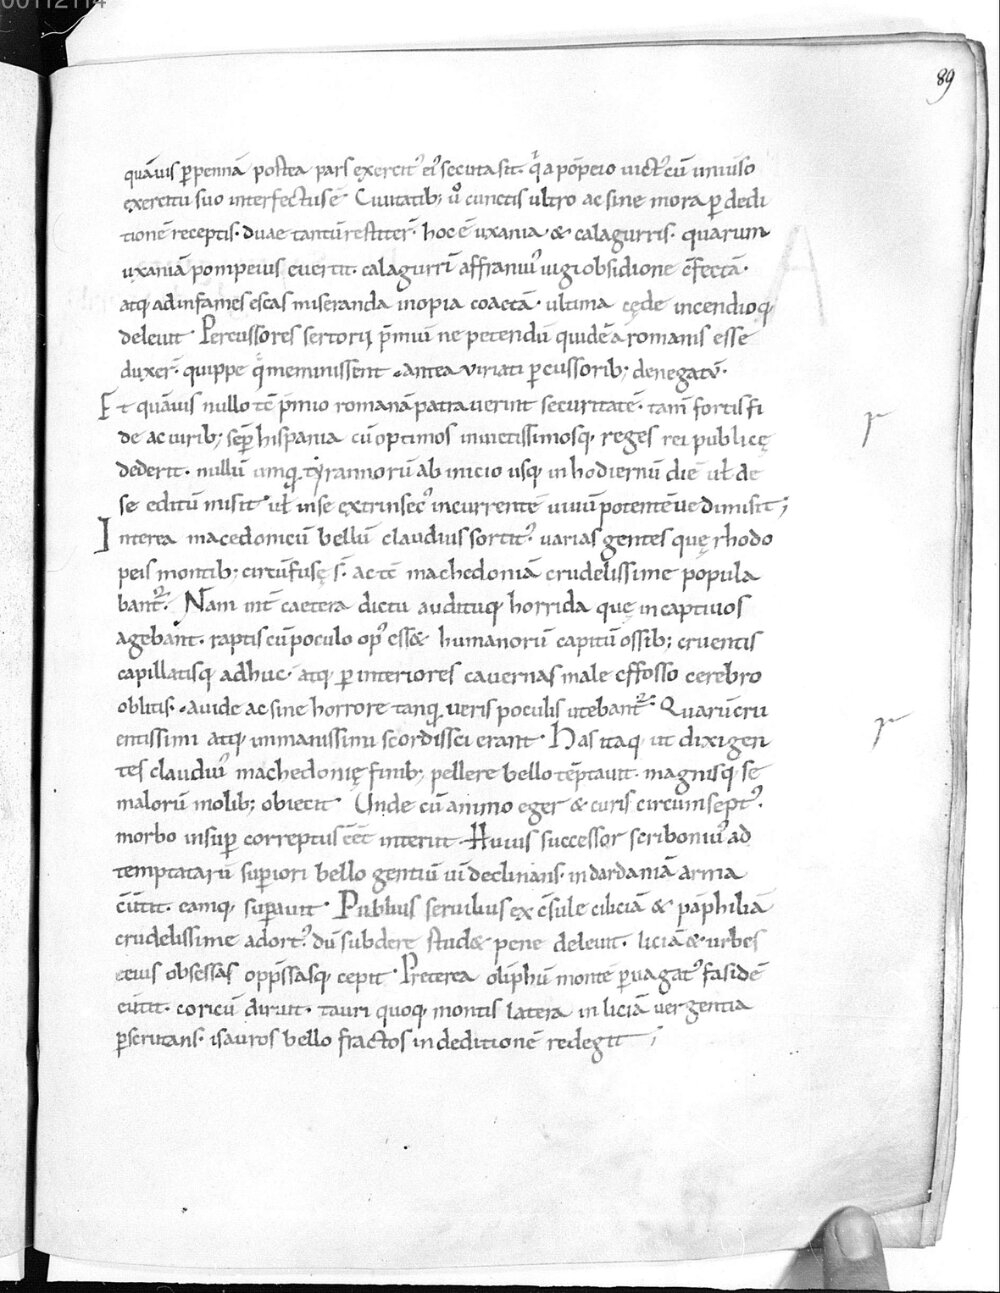 00112114
89
quāuis ꝑpennā postea pars exercit᷒ ei᷒ secuta sit. qͥ a pōpeio uict᷒ cū uniuso
exercitu suo interfectus ē. Ciuitatib; u᷒o cunctis ultro ac sine mora ꝑ dedi
tionē receptis. duae tantū restiter̄. hoc ē uxania & calagurris. quarum
uxaniā pompeius euertit. calagurrī affraniu᷒ iugi obsidione c̄fectā.
atq; ad infames escas miseranda inopia coactā. ultima cęde incendioq;
deleuit. Percussores sertorij p̄miū ne petendū quidē a romanis esse
duxer̄. quippe qͥ meminissent. antea uiriati ꝑcussorib; denegatū.
Et quāuis nullo tc̄ p̄mio romanā patrauerint securitatē. tam̄ fortis fi
de ac uirib; semꝑ hispania cū optimos inuictissimosq; reges rei publicę
dederit. nullū umq̄ tyrannorū ab inicio usq; in hodiernū diē uł de
se editū misit. uł in se extrinsec᷒ incurrentē uiuū potentēue dimisit;
Interea macedonicū bellū claudius sortit᷒. varias gentes quę rhodo
peis montib; circūfusę s̄. ac tc̄ machedoniā crudelissime popula
bant᷒. Nam int̄ caetera dictu audituq; horrida quę in captiuos
agebant. raptis cū poculo op᷒ ess& humanorū capitū ossib; cruentis
capillatisq; adhuc. atq; ꝑ interiores cauernas male effosso cerebro
oblitis. auide ac sine horrore tanq̄ ueris poculis utebant᷒. Quarū cru
entissimi atq; immanissimi scordissci erant. Has itaq; ut dixi gen
tes claudiu᷒ machedonię finib; pellere bello tēptauit. magnisq; se
malorū molib; obiecit. Unde cū animo eger & curis circumsept᷒.
morbo insuꝑ correptus eēt interiit. Huius successor scriboniu᷒ ad
temptatarū suꝑiori bello gentiū uī declinans. in dardaniā arma
c̄uertit. eamq; suꝑauit. Publius seruilius ex c̄sule ciliciā & pāphiliā
crudelissime adort᷒. dū subdere stud& pene deleuit. liciā & urbes
eius obsessas opp̄ssasq; cepit. Preterea olīphū montē ꝑuagat᷒ fasidē
euertit. coricū diruit. tauri quoq; montis latera in liciā uergentia
ꝑscrutans. isauros bello fractos in deditionē redegit;